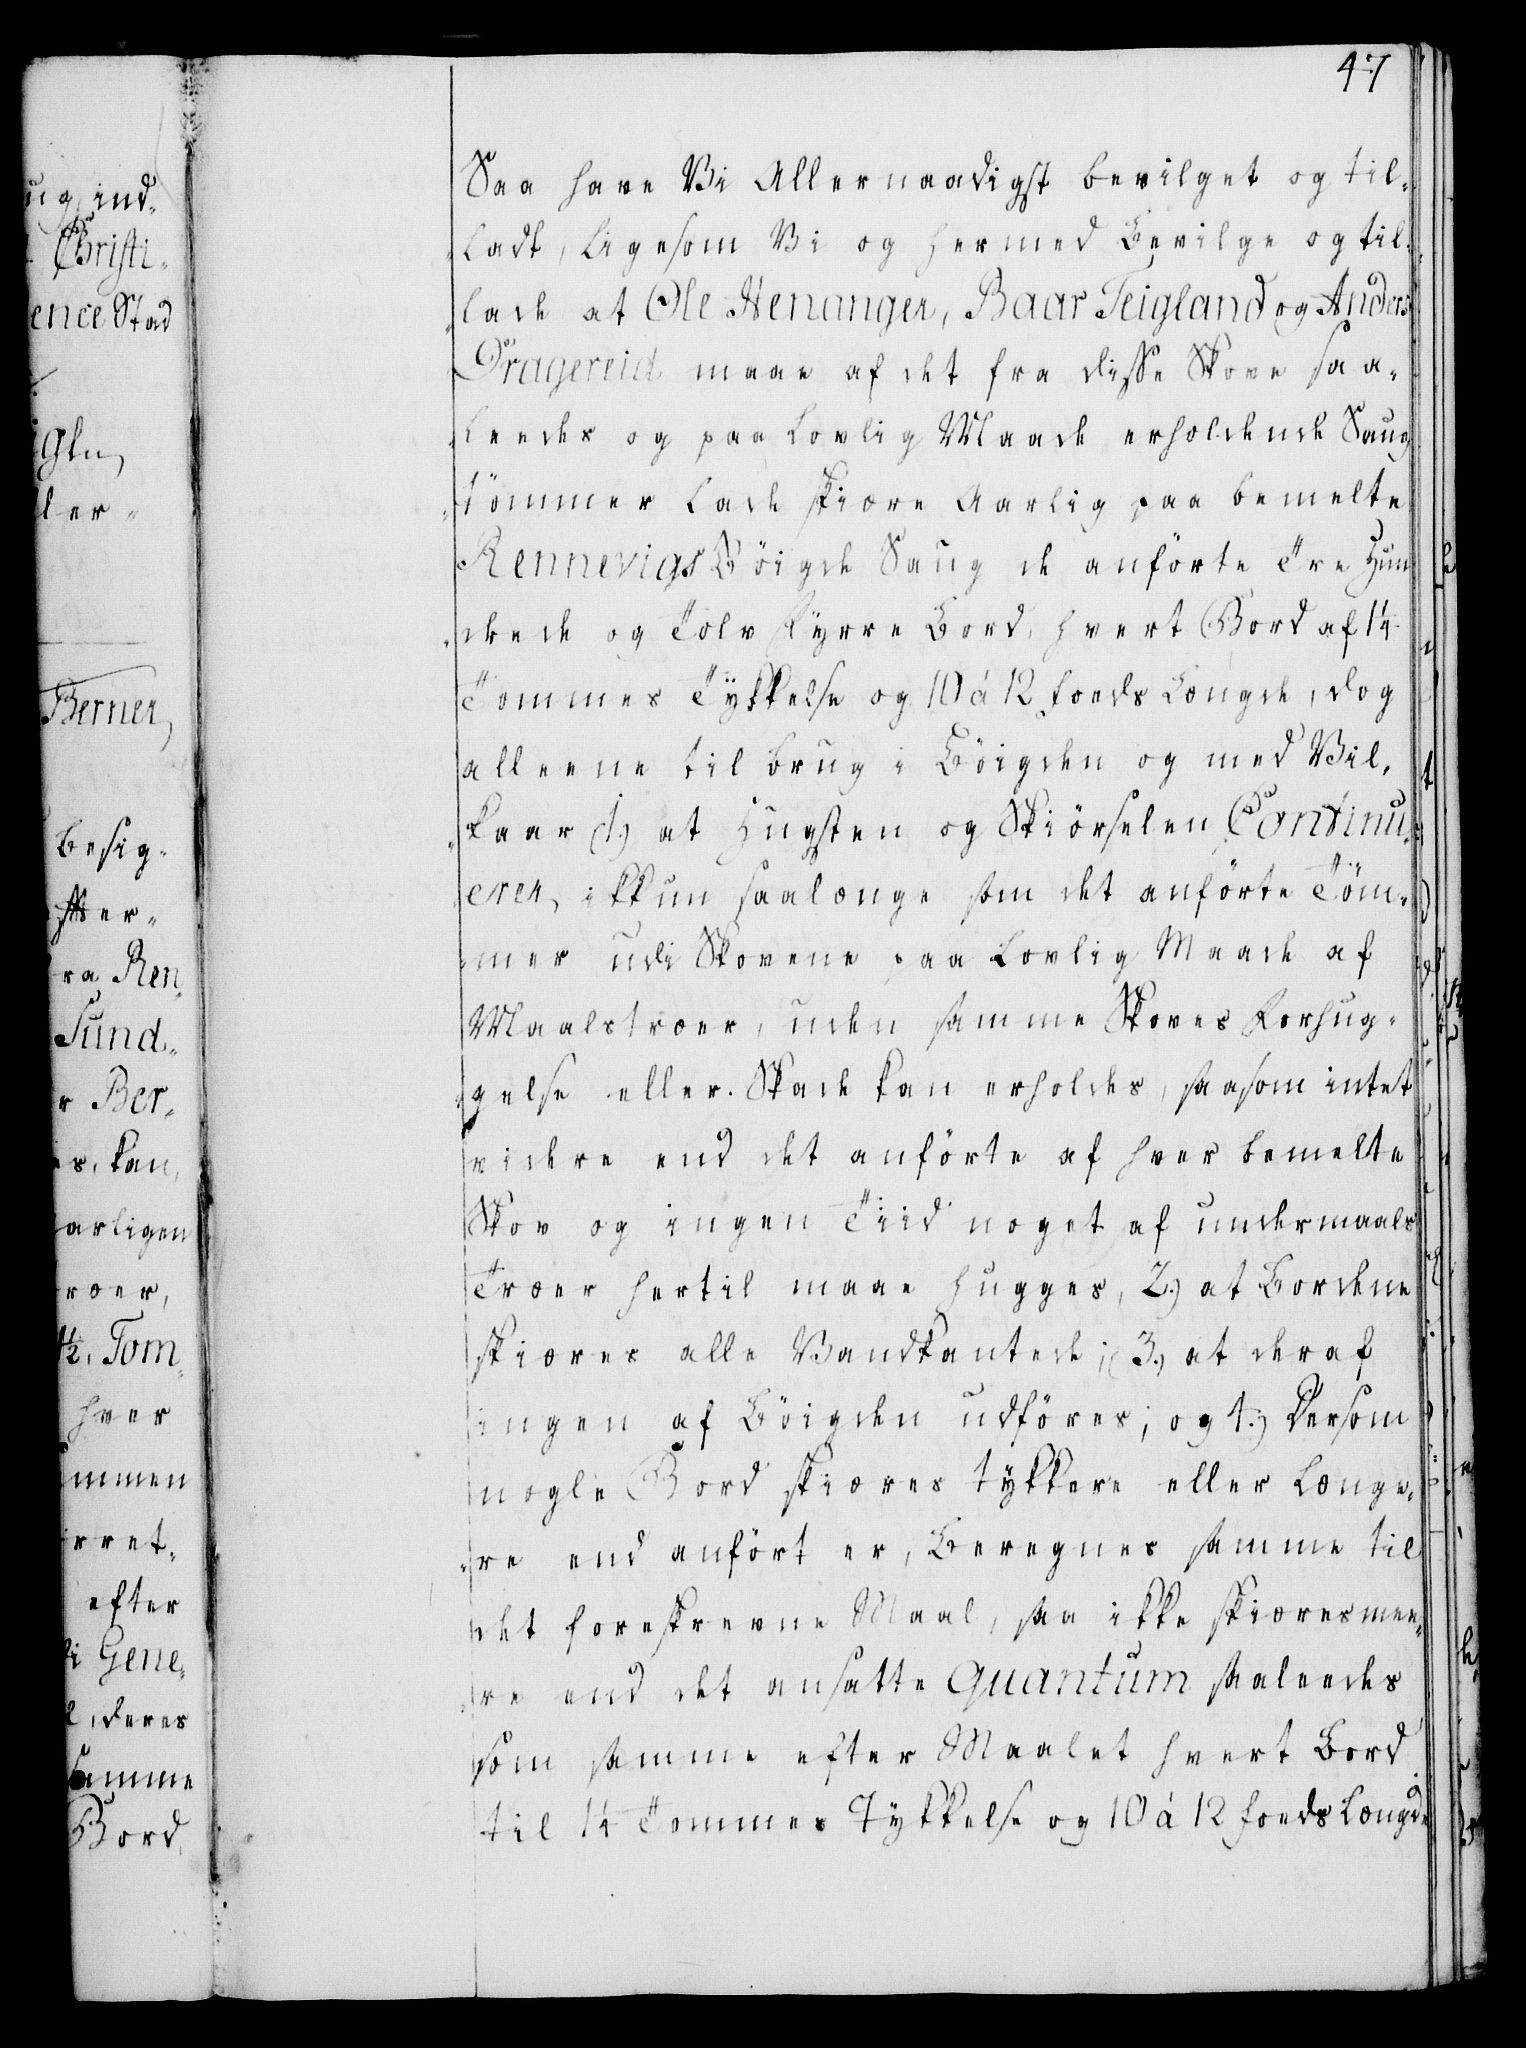 47
Saa have Vi Allernaadigst bevilget og til-
ladt, ligesom Vi og hermed Bevilge og til-
lade at Ole Henanger, Baar Teigland og Anders
Dragereid maae af det fra disse Skove saa-
leedes og paa Lovlig Maade erholdende Saug
tömmer lade skiære Aarlig paa bemelte
Rennevigs Böigde Saug de anförte Tre Hun
drede og Tolv Fyrre Bord, hvert Bord af 1¼
Tommes Tykkelse og 10 á 12 foeds Længde, dog
alleene til brug i Böigden og med Vil-
kaar 1.) at Hugsten og Skiörselen Continu-
erer, ikkun saalænge som det anförte Töm-
mer udi Skovene paa Lovlig Maade af
Maalstræer, uden samme Skoves Forhug-
gelse eller Skade kan erholdes, saasom intet
videre end det anförte af hver bemelte
Skov og ingen Tiid noget af undermaals
Træer hertil maae hugges, 2.) at Bordene
skiæres alle Vandkantede; 3.) at deraf
ingen af Böigden udföres; og 4.) Dersom
nogle Bord skiæres tykkere eller Længe-
re end anfört er, Beregnes samme til
det foreskrevne Maal, saa ikke skiæres mee-
re end det ansatte Quantum saaleedes
som samme efter Maalet hvert Bord
til 1¼ Tommes Tykkelse og 10 á 12 foeds Længde
ind-
Christi-
Stad
Berner,
besig-
Ren
Sund-
Ber-
kan,
Tom-
hver
efter
Gene-
deres
samme
Bord